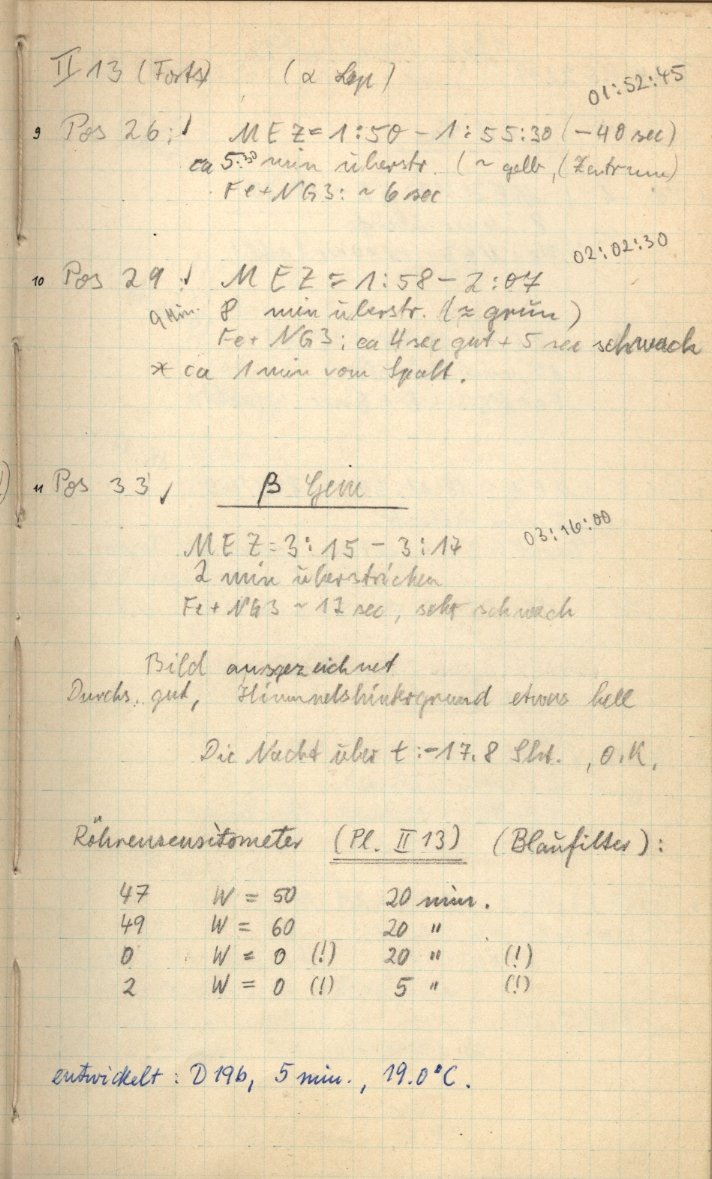 II 13 (Forts) (α Lep)
01:52:45
9 Pos 26: MEZ = 1:50 - 1:55:30 (-40 sec)
ca 5:30 min überstr. (~ gelb, (Zentrum)
Fe+NG3: ~ 6 sec
02:02:30
10 Pos 29: MEZ = 1:58 - 2:07
9 Min. 8 min überstr. (≈ grün)
Fe+NG3: ca 4 sec gut + 5 sec schwach
* ca 1 min vom Spalt.
11 Pos 33 β Gem
03:16:00
MEZ = 3:15 - 3:17
2 min überstrichen
Fe+NG3 ~ 12 sec, sehr schwach
Bild ausgezeichnet
Durchs. gut, Himmelshintergrund etwas hell
Die Nacht über t: -17.8 Skt., O.K.
Röhrensensitometer (Pl. II 13) (Blaufilter):
47 W = 50 20 min.
49 W = 60 20 "
0 W = 0 (!) 20 " (!)
2 W = 0 (!) 5 " (!)
entwickelt: D19b, 5 min., 19.0°C.